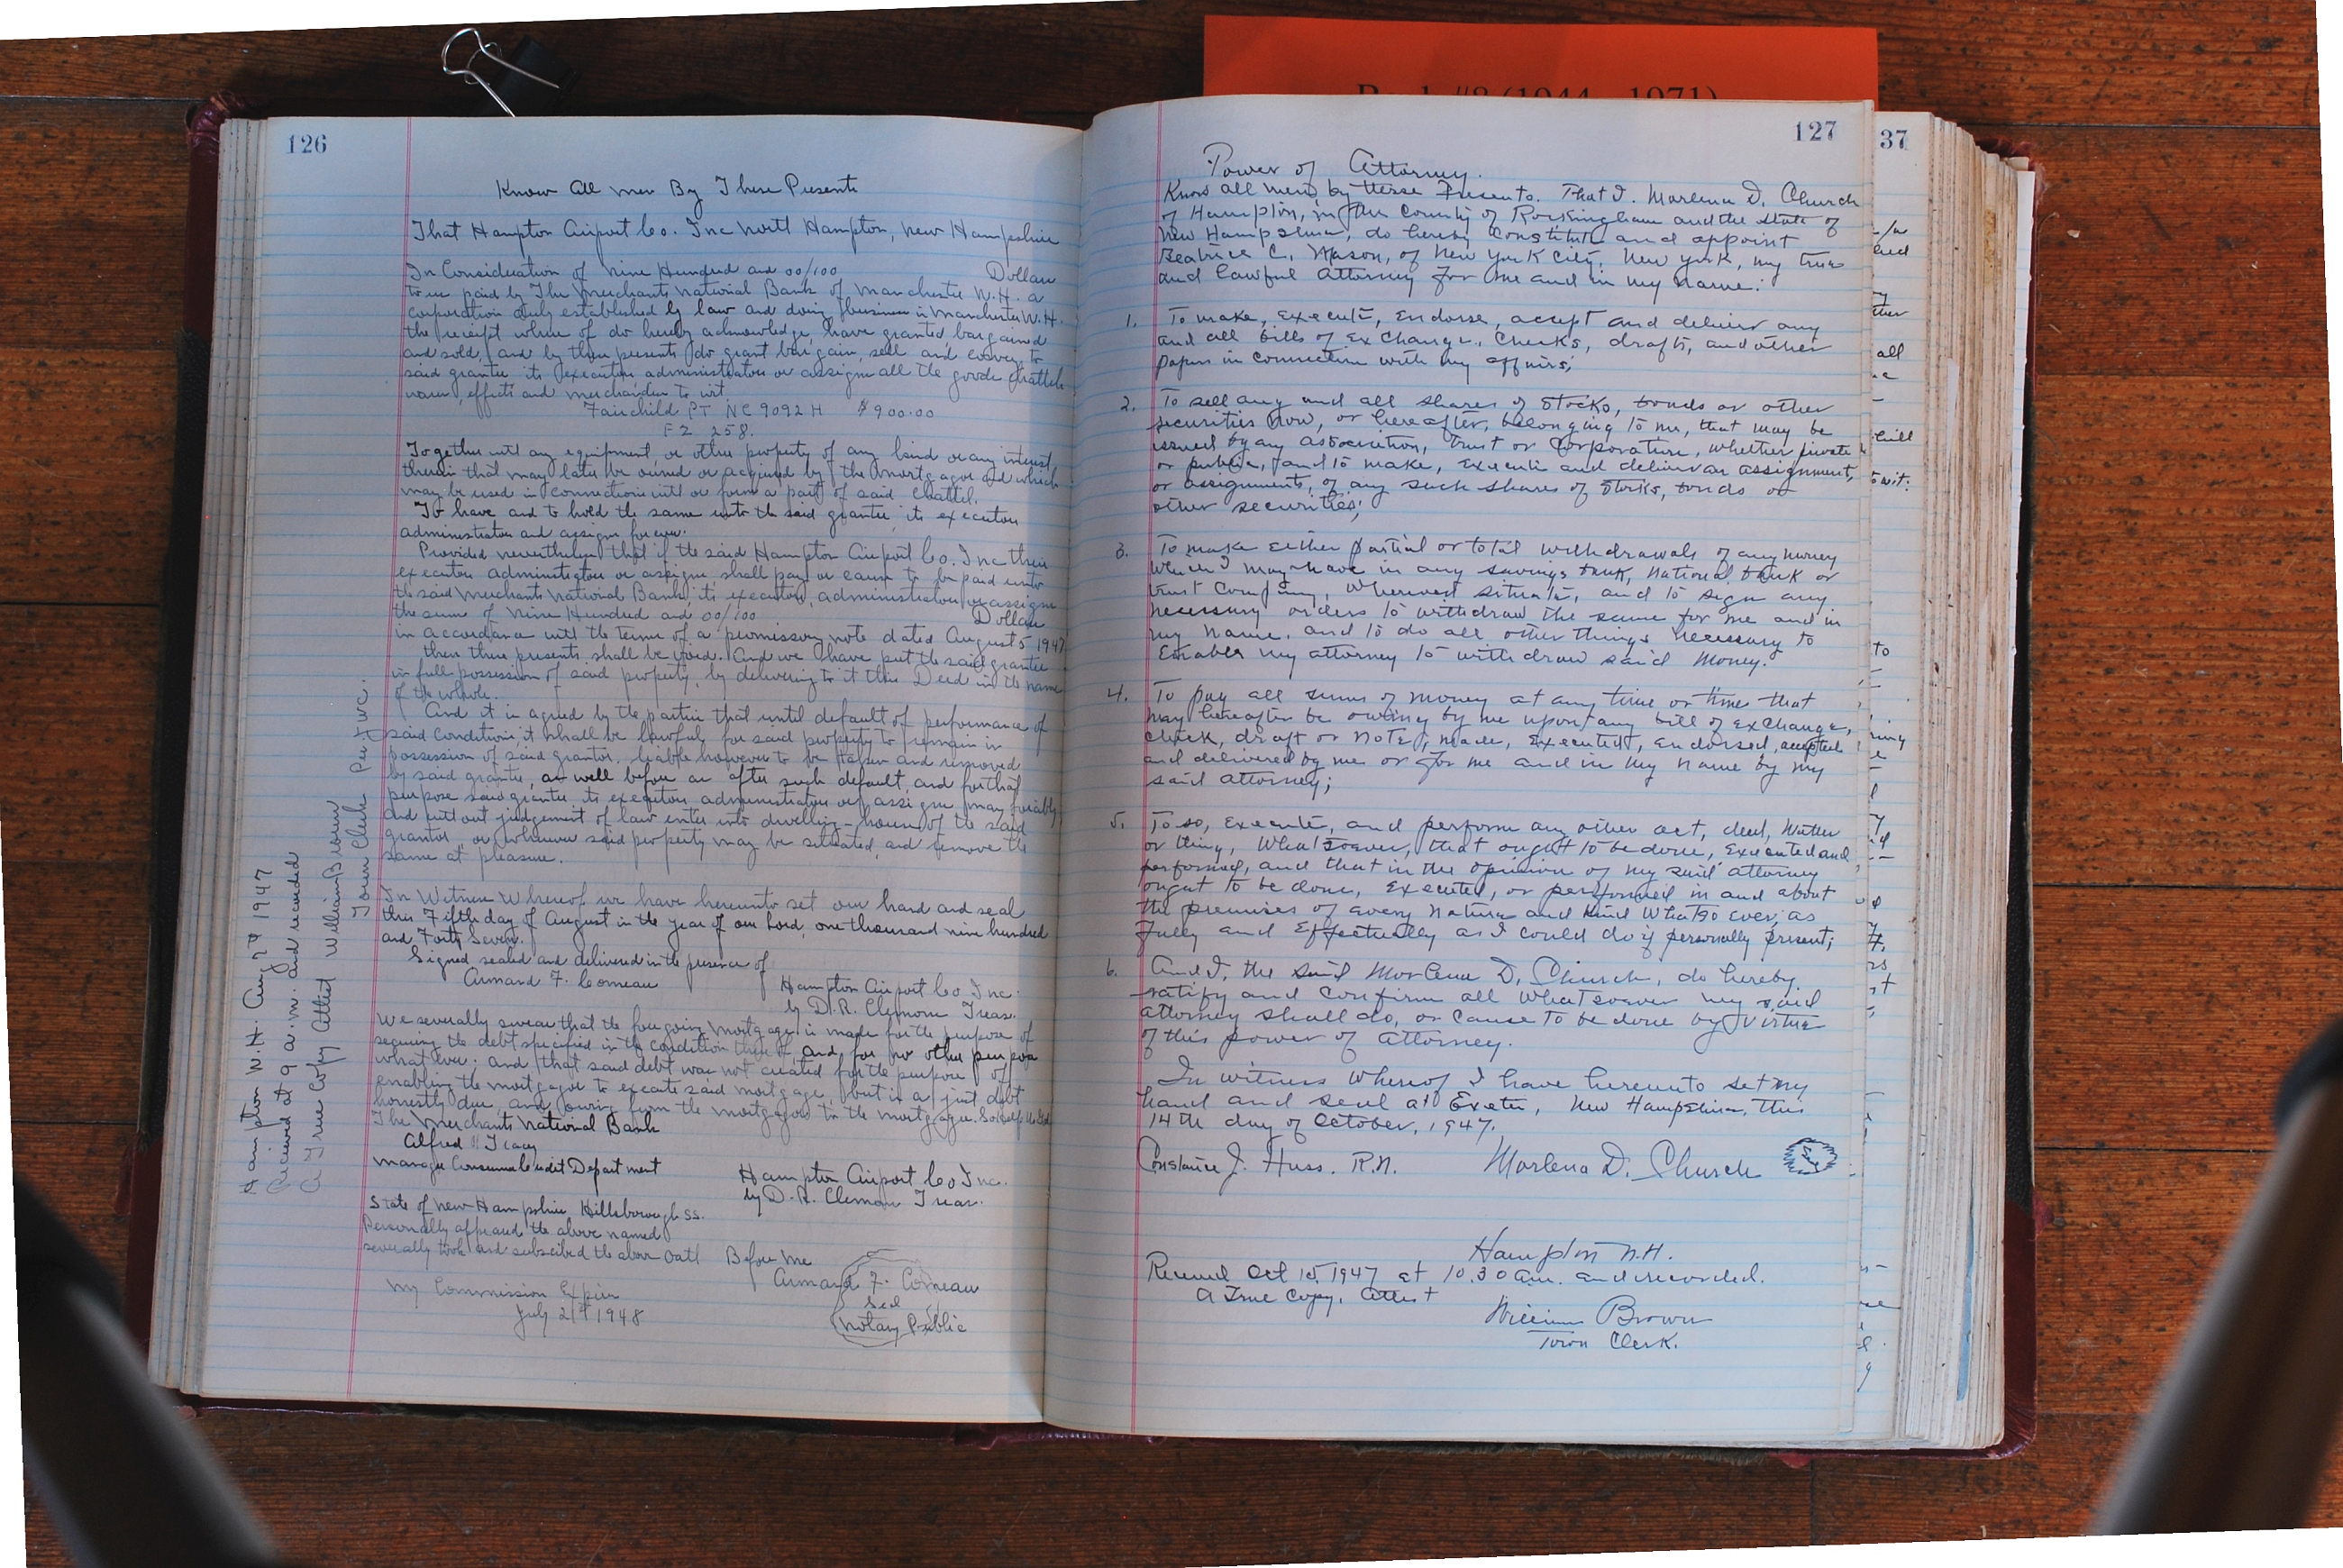 126
Know All men By These Presents
That Hampton Airport Co. Inc North Hampton, New Hampshire
In Consideration of Nine Hundred and 00/100 Dollars
to us paid by The Merchants National Bank of Manchester N.H. a
corporation duly established by law and doing business in Manchester N.H.
the receipt where of do hereby acknowledge, have granted, bargained
and sold, and by these presents do grant bargain, sell and convey to
said grantee its executors administrators or assigns all the goods chattels
wares, effects and merchandise to wit
Fairchild PT NC 9092 H $900.00
F2 258.
Together with any equipment or other property of any kind or any interest
therein that may later be owned or acquired by the mortgagor and which
may be used in connection with or form a part of said Chattel.
To have and to hold the same unto the said grantee its executors
administrators and assigns for ever.
Provided nevertheless that if the said Hampton Airport Co. Inc their
executors administrators or assigns shall pay or cause to be paid unto
the said Merchants National Bank, its executors, administrators or assigns
the sum of Nine Hundred and 00/100 Dollars
in accordance with the terms of a promissory note dated August 5 1947
then these presents shall be void. And we have put the said grantee
in full possession of said property, by delivering to it this Deed in the name
of the whole.
And it is agreed by the parties that until default of performance of
said condition it shall be lawful for said property to remain in
possession of said grantor, liable however to be taken and removed
by said grantee, as well before as after such default, and for that
purpose said grantee its executors administrators or assigns may forcibly
and without judgement of law enter into dwelling-house of the said
grantor, or wherever said property may be situated, and remove the
same at pleasure.
In Witness Whereof we have hereunto set our hand and seal
this Fifth day of August in the year of our Lord, one thousand nine hundred
and Forty Seven.
Signed sealed and delivered in the presence of
Armand F. Comeau
Hampton Airport Co Inc.
by D.R. Clemons Treas.
We severally swear that the foregoing mortgage is made for the purpose of
securing the debt specified in the condition thereof, and for no other purpose
what ever; and that said debt was not created for the purpose of
enabling the mortgagor to execute said mortgage, but is a just debt
honestly due and owing from the mortgagor to the mortgagee. So help us God
The Merchants National Bank
Alfred Tracey
Manager Consumer Credit Department
Hampton Airport Co Inc.
by D.R. Clemons Treas.
State of New Hampshire Hillsborough ss.
Personally appeared the above named
severally took and subscribed the above oath Before Me
Armand F. Comeau
Seal
Notary Public
My Commission Expires
July 21st 1948
Hampton N.H. Aug 1947
Received at 9 a.m. and recorded
A True Copy Attest William Brown
Town Clerk
127
Power of Attorney.
Know all men by these Presents. That I. Marlena D. Church
of Hampton, in the County of Rockingham and the State of
New Hampshire, do hereby Constitute and appoint
Beatrice C. Mason, of New York City, New York, my true
and lawful Attorney for me and in my name:
1. To make, execute, endorse, accept and deliver any
and all bills of exchange, checks, drafts, and other
papers in connection with my affairs;
2. To sell any and all shares of stocks, bonds or other
securities now, or hereafter, belonging to me, that may be
issued by any association, trust or corporation, whether private
or public, and to make, execute and deliver an assignment,
or assignments, of any such shares of stocks, bonds or
other securities;
3. To make either partial or total withdrawals of any money
which I may have in any savings bank, national bank or
trust Company, wherever situate, and to sign any
necessary orders to withdraw the same for me and in
my name, and to do all other things necessary to
enable my attorney to withdraw said money.
4. To pay all sums of money at any time or times that
may hereafter be owing by me upon any bill of exchange,
check, draft or note, made, executed, endorsed, accepted
and delivered by me or for me and in my name by my
said attorney;
5. To so, execute, and perform any other act, deed, matter
or thing, whatsoever, that ought to be done, executed and
performed, and that in the opinion of my said attorney
ought to be done, executed, or performed in and about
the premises of every nature and kind whatso ever, as
fully and effectually as I could do if personally present;
6. And I, the said Marlena D. Church, do hereby
ratify and confirm all whatsoever my said
attorney shall do, or cause to be done by virtue
of this power of Attorney.
In witness whereof I have hereunto set my
hand and seal at Exeter, New Hampshire, this
14th day of October, 1947.
Constance J. Huss. R.N. Marlena D. Church Seal
Hampton N.H.
Received Oct 15, 1947 at 10.30 a.m. and recorded.
A True Copy, Attest
William Brown
Town Clerk.
37